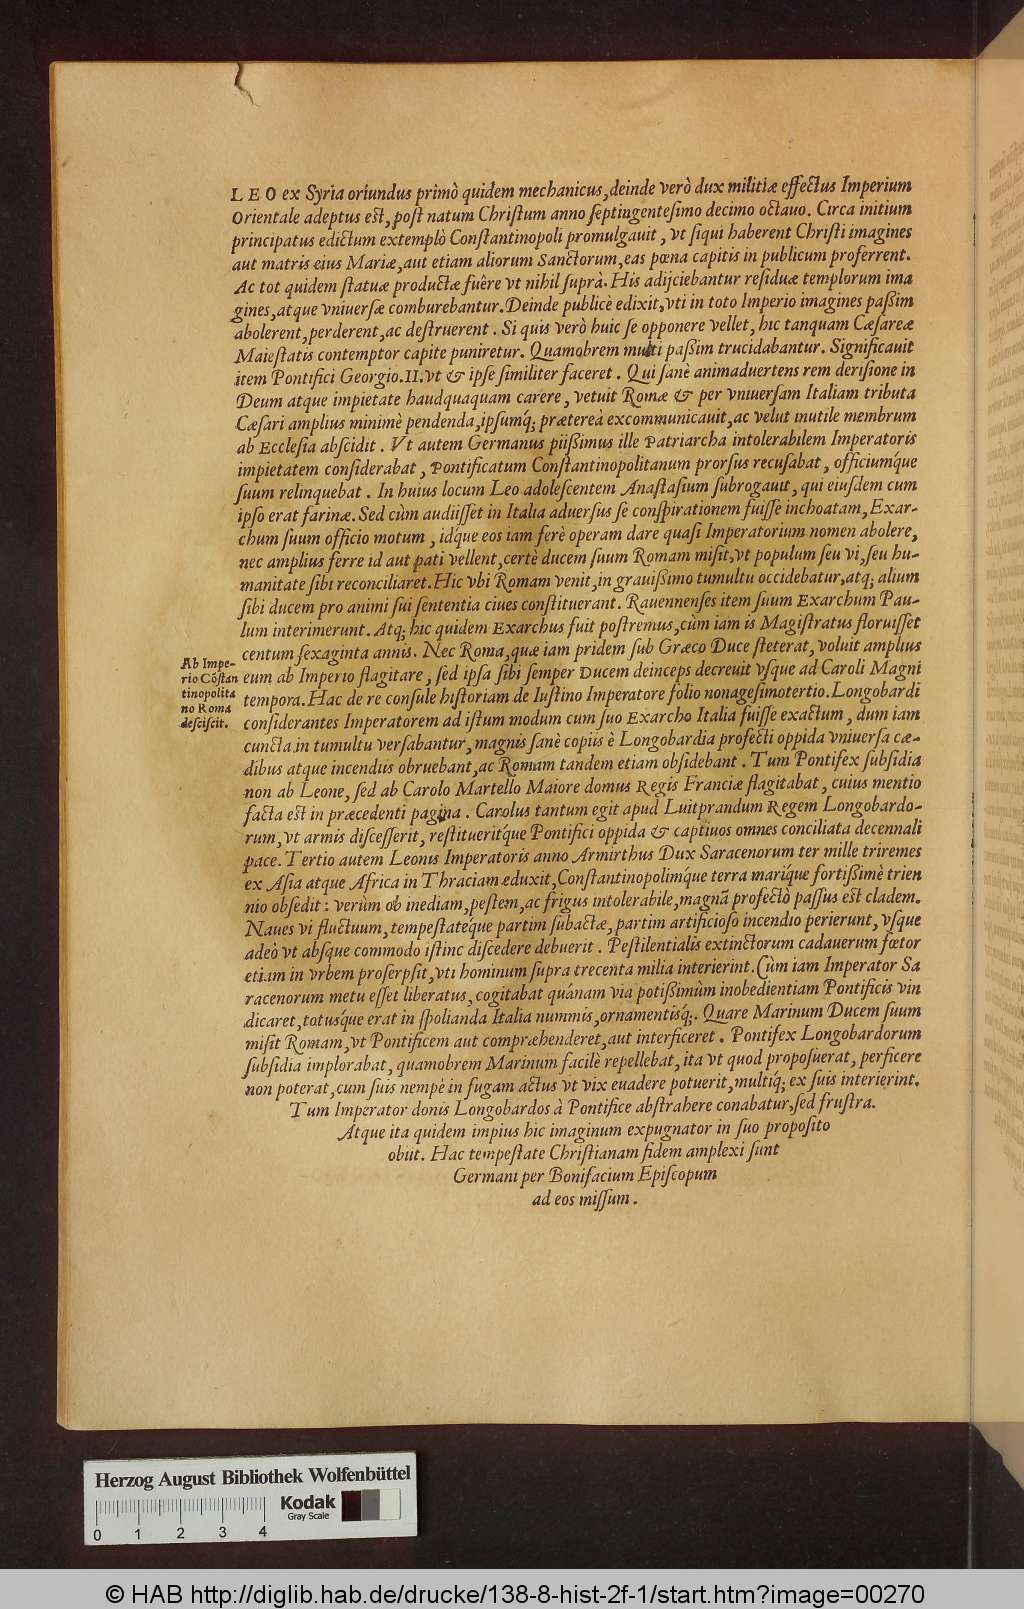 LEO ex Syria oriundus primò quidem mechanicus, deinde verò dux militiæ effectus Imperium
Orientale adeptus est, post natum Christum anno septingentesimo decimo octauo. Circa initium
principatus edictum extemplò Constantinopoli promulgauit, vt siqui haberent Christi imagines
aut matris eius Mariæ, aut etiam aliorum Sanctorum, eas pœna capitis in publicum proferrent.
Ac tot quidem statuæ productæ fuêre vt nihil suprà. His adijciebantur residuæ templorum ima
gines, atque vniuersæ comburebantur. Deinde publicè edixit, vti in toto Imperio imagines paßim
abolerent, perderent, ac destruerent. Si quis verò huic se opponere vellet, hic tanquam Cæsareæ
Maiestatis contemptor capite puniretur. Quamobrem multi paßim trucidabantur. Significauit
item Pontifici Georgio. II. vt & ipse similiter faceret. Qui sanè animaduertens rem derisione in
Deum atque impietate haudquaquam carere, vetuit Romæ & per vniuersam Italiam tributa
Cæsari amplius minimè pendenda, ipsumq́; prætereà excommunicauit, ac velut inutile membrum
ab Ecclesia abscidit. Vt autem Germanus piißimus ille Patriarcha intolerabilem Imperatoris
impietatem considerabat, Pontificatum Constantinopolitanum prorsus recusabat, officiumq́ue
suum relinquebat. In huius locum Leo adolescentem Anastasium subrogauit, qui eiusdem cum
ipso erat farinæ. Sed cùm audiisset in Italia aduersus se conspirationem fuisse inchoatam, Exar-
chum suum officio motum, idq́ue eos iam ferè operam dare quasi Imperatorium nomen abolere,
nec amplius ferre id aut pati vellent, certè ducem suum Romam misit, vt populum seu vi, seu hu-
manitate sibi reconciliaret. Hic vbi Romam venit, in grauißimo tumultu occidebatur, atq; alium
sibi ducem pro animi sui sententia ciues constituerant. Rauennenses item suum Exarchum Pau-
lum interimerunt. Atq; hic quidem Exarchus fuit postremus, cùm iam is Magistratus floruisset
centum sexaginta annis. Nec Roma, quæ iam pridem sub Græco Duce steterat, voluit amplius
Ab Impe-
rio Cōstan
tinopolita
no Roma
desciscit.
eum ab Imperio flagitare, sed ipsa sibi semper Ducem deinceps decreuit vsque ad Caroli Magni
tempora. Hac de re consule historiam de Iustino Imperatore folio nonagesimotertio. Longobardi
considerantes Imperatorem ad istum modum cum suo Exarcho Italia fuisse exactum, dum iam
cuncta in tumultu versabantur, magnis sanè copiis è Longobardia profecti oppida vniuersa cæ-
dibus atque incendiis obruebant, ac Romam tandem etiam obsidebant. Tum Pontifex subsidia
non ab Leone, sed ab Carolo Martello Maiore domus Regis Franciæ flagitabat, cuius mentio
facta est in præcedenti pagina. Carolus tantum egit apud Luitprandum Regem Longobardo-
rum, vt armis discesserit, restitueritq́ue Pontifici oppida & captiuos omnes conciliata decennali
pace. Tertio autem Leonis Imperatoris anno Armirthus Dux Saracenorum ter mille triremes
ex Asia atque Africa in Thraciam eduxit, Constantinopolimq́ue terra mariq́ue fortißimè trien
nio obsedit: verùm ob inediam, pestem, ac frigus intolerabile, magnā profectò passus est cladem.
Naues vi fluctuum, tempestateq́ue partim subactæ, partim artificioso incendio perierunt, vsque
adeò vt absque commodo istinc discedere debuerit. Pestilentialis extinctorum cadauerum fœtor
etiam in vrbem proserpsit, vti hominum supra trecenta milia interierint. Cùm iam Imperator Sa
racenorum metu esset liberatus, cogitabat quánam via potißimùm inobedientiam Pontificis vin
dicaret, totusq́ue erat in spolianda Italia nummis, ornamentisq́;. Quare Marinum Ducem suum
misit Romam, vt Pontificem aut compræhenderet, aut interficeret. Pontifex Longobardorum
subsidia implorabat, quamobrem Marinum facilè repellebat, ita vt quod proposuerat, perficere
non poterat, cum suis nempè in fugam actus vt vix euadere potuerit, multiq́; ex suis interierint.
Tum Imperator donis Longobardos à Pontifice abstrahere conabatur, sed frustra.
Atque ita quidem impius hic imaginum expugnator in suo proposito
obiit. Hac tempestate Christianam fidem amplexi sunt
Germani per Bonifacium Episcopum
ad eos missum.
Herzog August Bibliothek Wolfenbüttel
Kodak
Gray Scale
0 1 2 3 4
© HAB http://diglib.hab.de/drucke/138-8-hist-2f-1/start.htm?image=00270